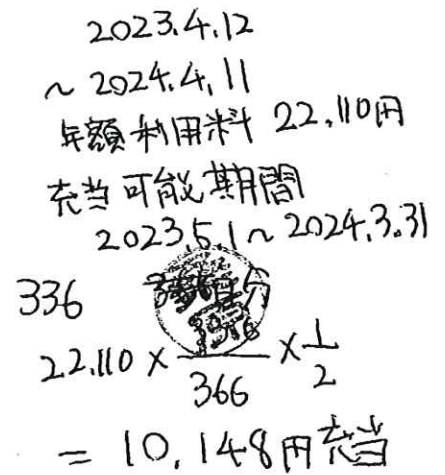 2023.4.12
~ 2024.4.11
年額利用料 22,110円
充当可能期間
2023 5.1~2024.3.31
336
22.110 × /366 × 1/2
= 10,148円充当